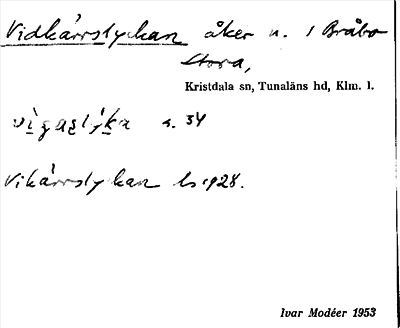 Vidkärrstyckan åker n. 1 Bråbo
Stora,
Kristdala sn, Tunaläns hd, Klm. l.
s. 34
Vikärrstyckan ls 1928.
Ivar Modéer 1953